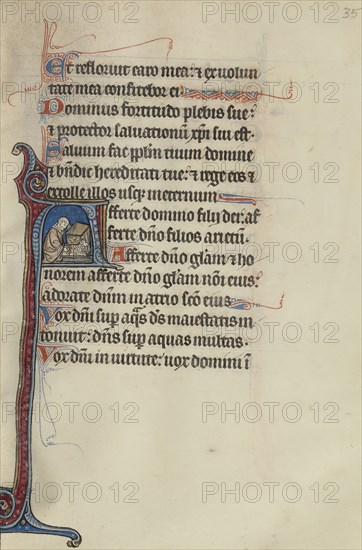 35
Et refloruit caro mea: et ex volun
tate mea confitebor ei
Dominus fortitudo plebis sue:
et protector salvationū xp̄i sui est.
Saluum fac pp̄lm tuum domine
et bn̄dic hereditati tue: et rege eos et
extolle illos usq; in eternum
Afferte domino filii dei: af
ferte dn̄o filios arietū.
Afferte dn̄o gl̄am et ho
norem afferte dn̄o gl̄am nōi eius:
adorate dn̄m in atrio sc̄o eius
Vox dn̄i sup̄ aq̄s dˉs maiestatis in
tonuit: dn̄s sup̄ aquas multas.
Vox dn̄i in uirtute: uox domini ī
PHOTO 12 PHOTO 12 PHOTO 12
PHOTO 12 PHOTO 12 PHOTO 12
PHOTO 12 PHOTO 12 PHOTO 12
PHOTO 12 PHOTO 12 PHOTO 12
PHOTO 12 PHOTO 12 PHOTO 12
PHOTO 12 PHOTO 12 PHOTO 12